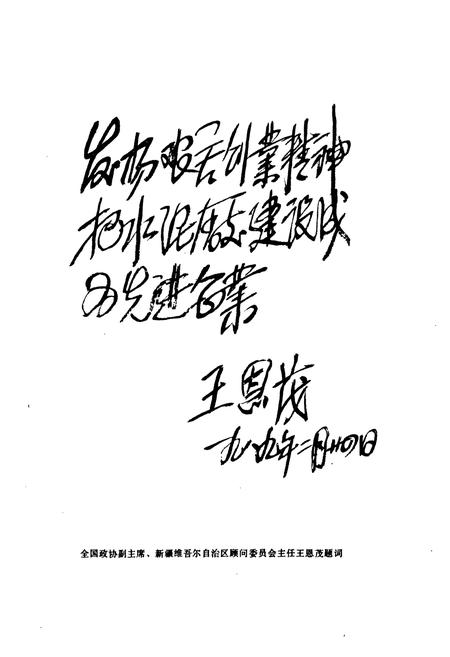 发扬艰苦创業精神
把水泥廠建设成
为先进企業
王恩茂
一九八九年二月廿四日
全国政协副主席、新疆维吾尔自治区顾问委员会主任王恩茂题词